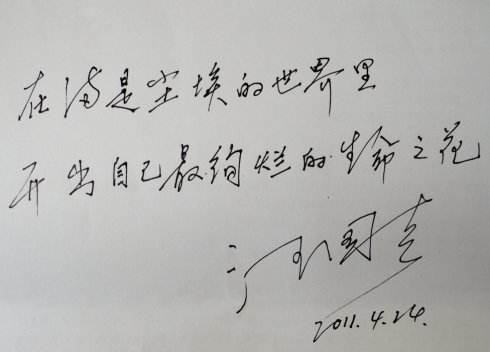 在满是尘埃的世界里
开出自己最绚烂的生命之花
汪国真
2011.4.24.